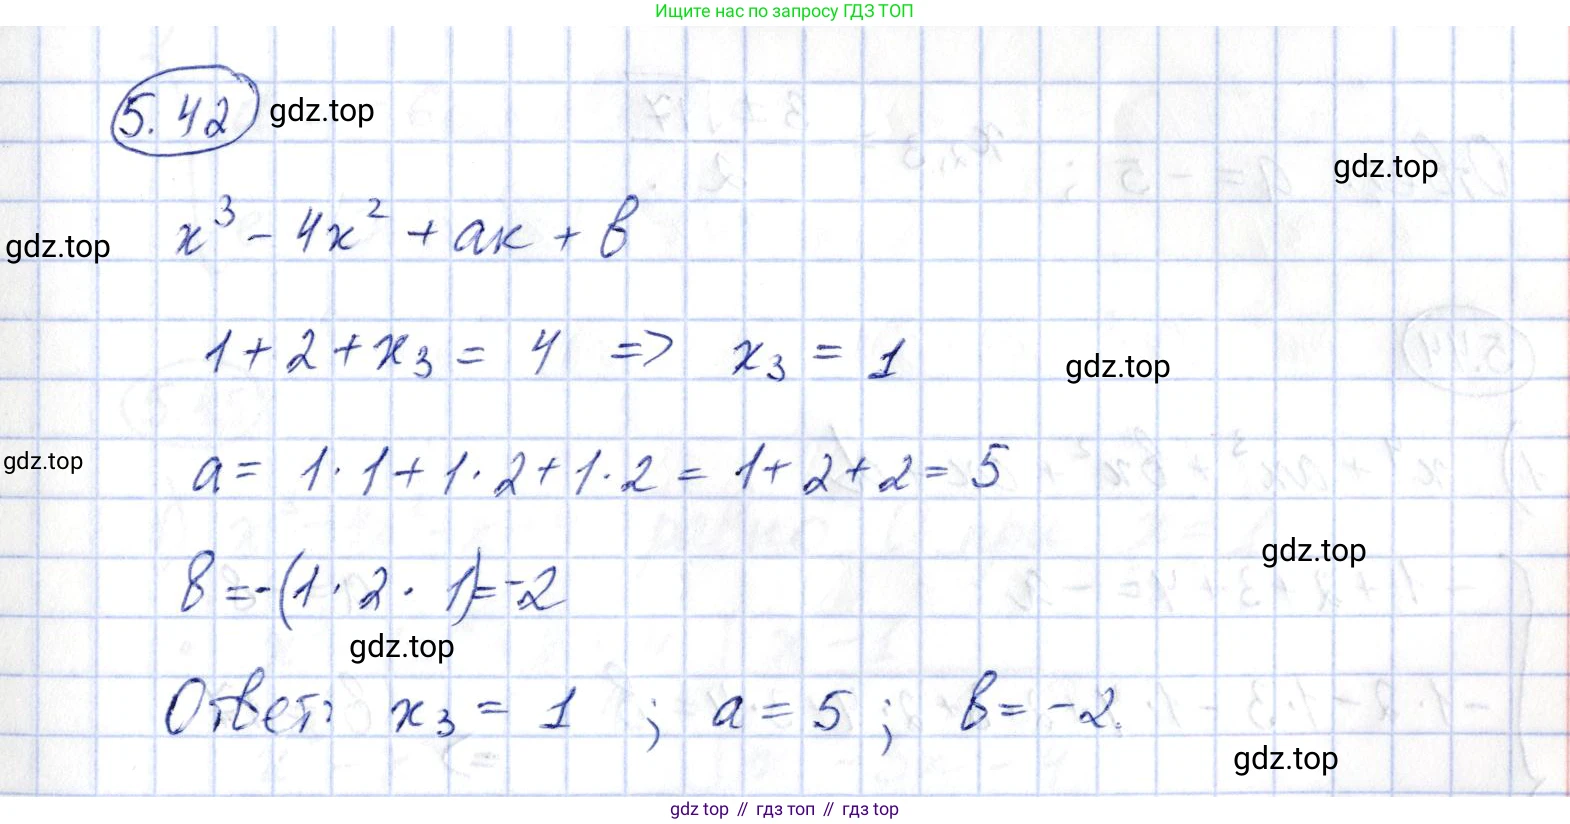 Ищите нас по запросу ГДЗ ТОП
5.42 gdz.top
gdz.top
x³ - 4x² + ax + b
gdz.top
1 + 2 + x₃ = 4 => x₃ = 1
gdz.top
a = 1·1 + 1·2 + 1·2 = 1 + 2 + 2 = 5
gdz.top
gdz.top
b = -(1·2·1) = -2
gdz.top
Ответ: x₃ = 1 ; a = 5 ; b = -2.
gdz.top
gdz top // гдз топ // гдз top